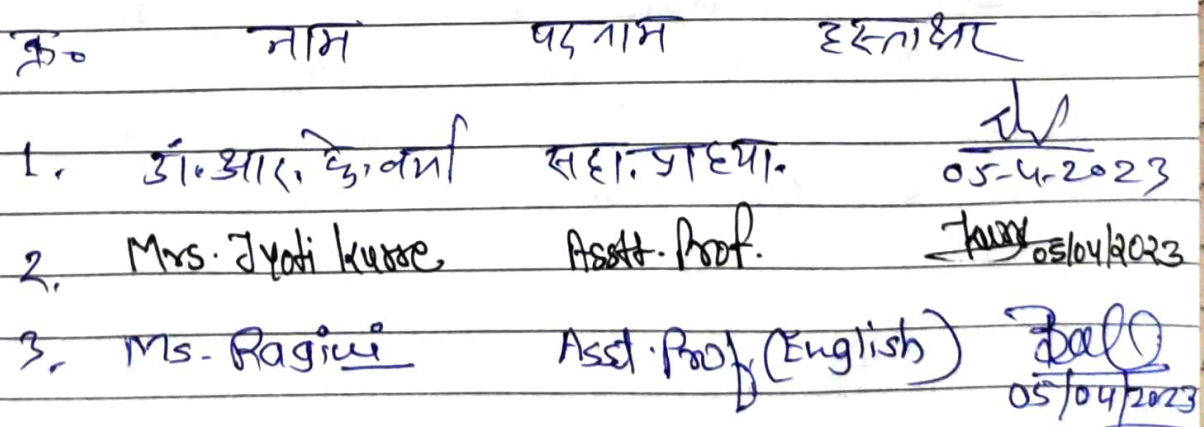 क्र० नाम पदनाम हस्ताक्षर
1. डॉ. आर. के. वर्मा सहा. प्राध्या. 05-4-2023
2. Mrs. Jyoti Kurre Asstt. Prof. 05/04/2023
3. Ms. Ragini Asst. Prof. (English) 05/04/2023